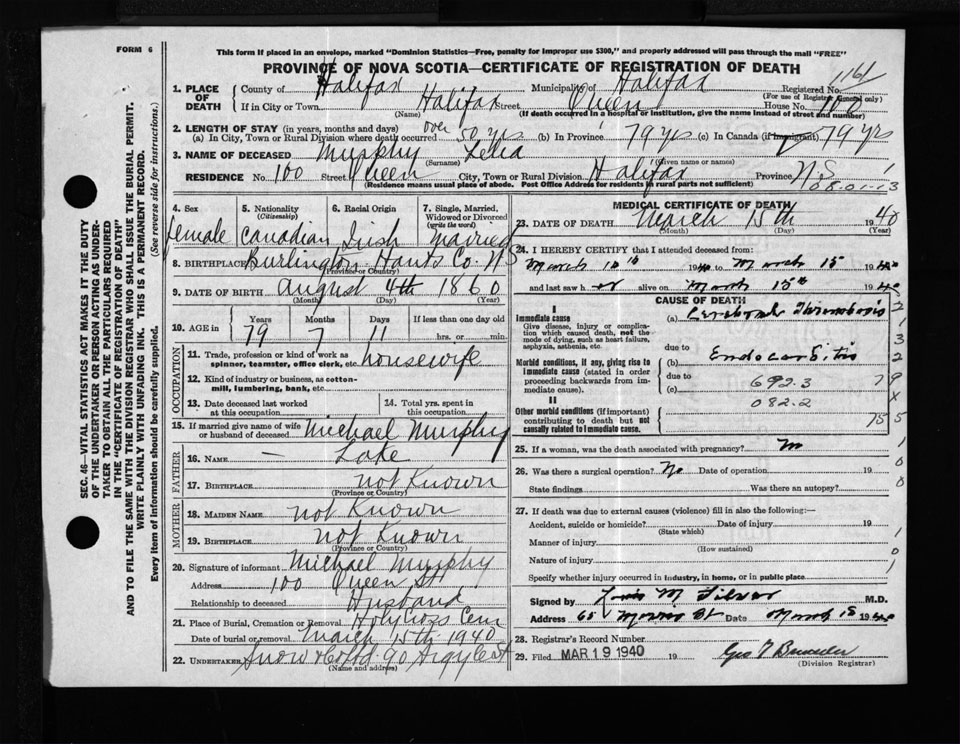 FORM 6
This form if placed in an envelope, marked "Dominion Statistics—Free, penalty for improper use $300," and properly addressed will pass through the mail "FREE"
PROVINCE OF NOVA SCOTIA—CERTIFICATE OF REGISTRATION OF DEATH
1161
1. PLACE OF DEATH County of Halifax Municipality of Halifax Registered No.
(For use of Registrar General only)
If in City or Town Halifax Street Queen House No. 100
(Name) (If death occurred in a hospital or institution, give the name instead of street and number)
2. LENGTH OF STAY (in years, months and days)
(a) In City, Town or Rural Division where death occurred over 50 yrs (b) In Province 79 yrs (c) In Canada (if immigrant) 79 yrs
3. NAME OF DECEASED Murphy Lelia
(Surname) (Given name or names)
RESIDENCE No. 100 Street Queen City, Town or Rural Division Halifax Province N.S.
(Residence means usual place of abode. Post Office Address for residents in rural parts not sufficient)
08.01-13
4. Sex 5. Nationality (Citizenship) 6. Racial Origin 7. Single, Married, Widowed or Divorced (write the word)
female Canadian Irish Married
8. BIRTHPLACE Burlington Hants Co. N.S
(Province or Country)
9. DATE OF BIRTH August 4th 1860
(Month) (Day) (Year)
10. AGE in Years Months Days If less than one day old
79 7 11 hrs. or min.
OCCUPATION
11. Trade, profession or kind of work as spinner, teamster, office clerk, etc. housewife
12. Kind of industry or business, as cotton-mill, lumbering, bank, etc.
13. Date deceased last worked at this occupation
14. Total yrs. spent in this occupation
15. If married give name of wife or husband of deceased Michael Murphy
FATHER
16. NAME — Lake
17. BIRTHPLACE not Known
(Province or Country)
MOTHER
18. MAIDEN NAME not Known
19. BIRTHPLACE not Known
(Province or Country)
20. Signature of informant Michael Murphy
Address 100 Queen St
Relationship to deceased Husband
21. Place of Burial, Cremation or Removal Holy Cross Cem
Date of burial or removal March 15th 1940
22. UNDERTAKER Snow & Co Ltd 90 Argyle St
(Name and address)
MEDICAL CERTIFICATE OF DEATH
23. DATE OF DEATH March 15th 1940
(Month) (Day) (Year)
24. I HEREBY CERTIFY that I attended deceased from:
March 10th 1940 to March 15 1940
and last saw her alive on March 15th 1940
CAUSE OF DEATH
I
Immediate cause (a) Cerebral Thrombosis
Give disease, injury or complication which caused death, not the mode of dying, such as heart failure, asphyxia, asthenia, etc.
due to
Morbid conditions, if any, giving rise to immediate cause (stated in order proceeding backwards from immediate cause).
(b) Endocarditis
due to
(c) 692.3
082.2
II
Other morbid conditions (if important) contributing to death but not causally related to immediate cause.
25. If a woman, was the death associated with pregnancy? No
26. Was there a surgical operation? No Date of operation 19
State findings Was there an autopsy?
27. If death was due to external causes (violence) fill in also the following:—
Accident, suicide or homicide? Date of injury 19
(State which)
Manner of injury
(How sustained)
Nature of injury
Specify whether injury occurred in industry, in home, or in public place
Signed by Louis M Silver M.D.
Address 65 Morris St Date March 15 1940
28. Registrar's Record Number
29. Filed MAR 19 1940 19
(Division Registrar)
SEC. 46—VITAL STATISTICS ACT MAKES IT THE DUTY
OF THE UNDERTAKER OR PERSON ACTING AS UNDER-
TAKER TO OBTAIN ALL THE PARTICULARS REQUIRED
IN THE "CERTIFICATE OF REGISTRATION OF DEATH"
AND TO FILE THE SAME WITH THE DIVISION REGISTRAR WHO SHALL ISSUE THE BURIAL PERMIT.
WRITE PLAINLY WITH UNFADING INK. THIS IS A PERMANENT RECORD.
Every item of information should be carefully supplied. (See reverse side for instructions.)